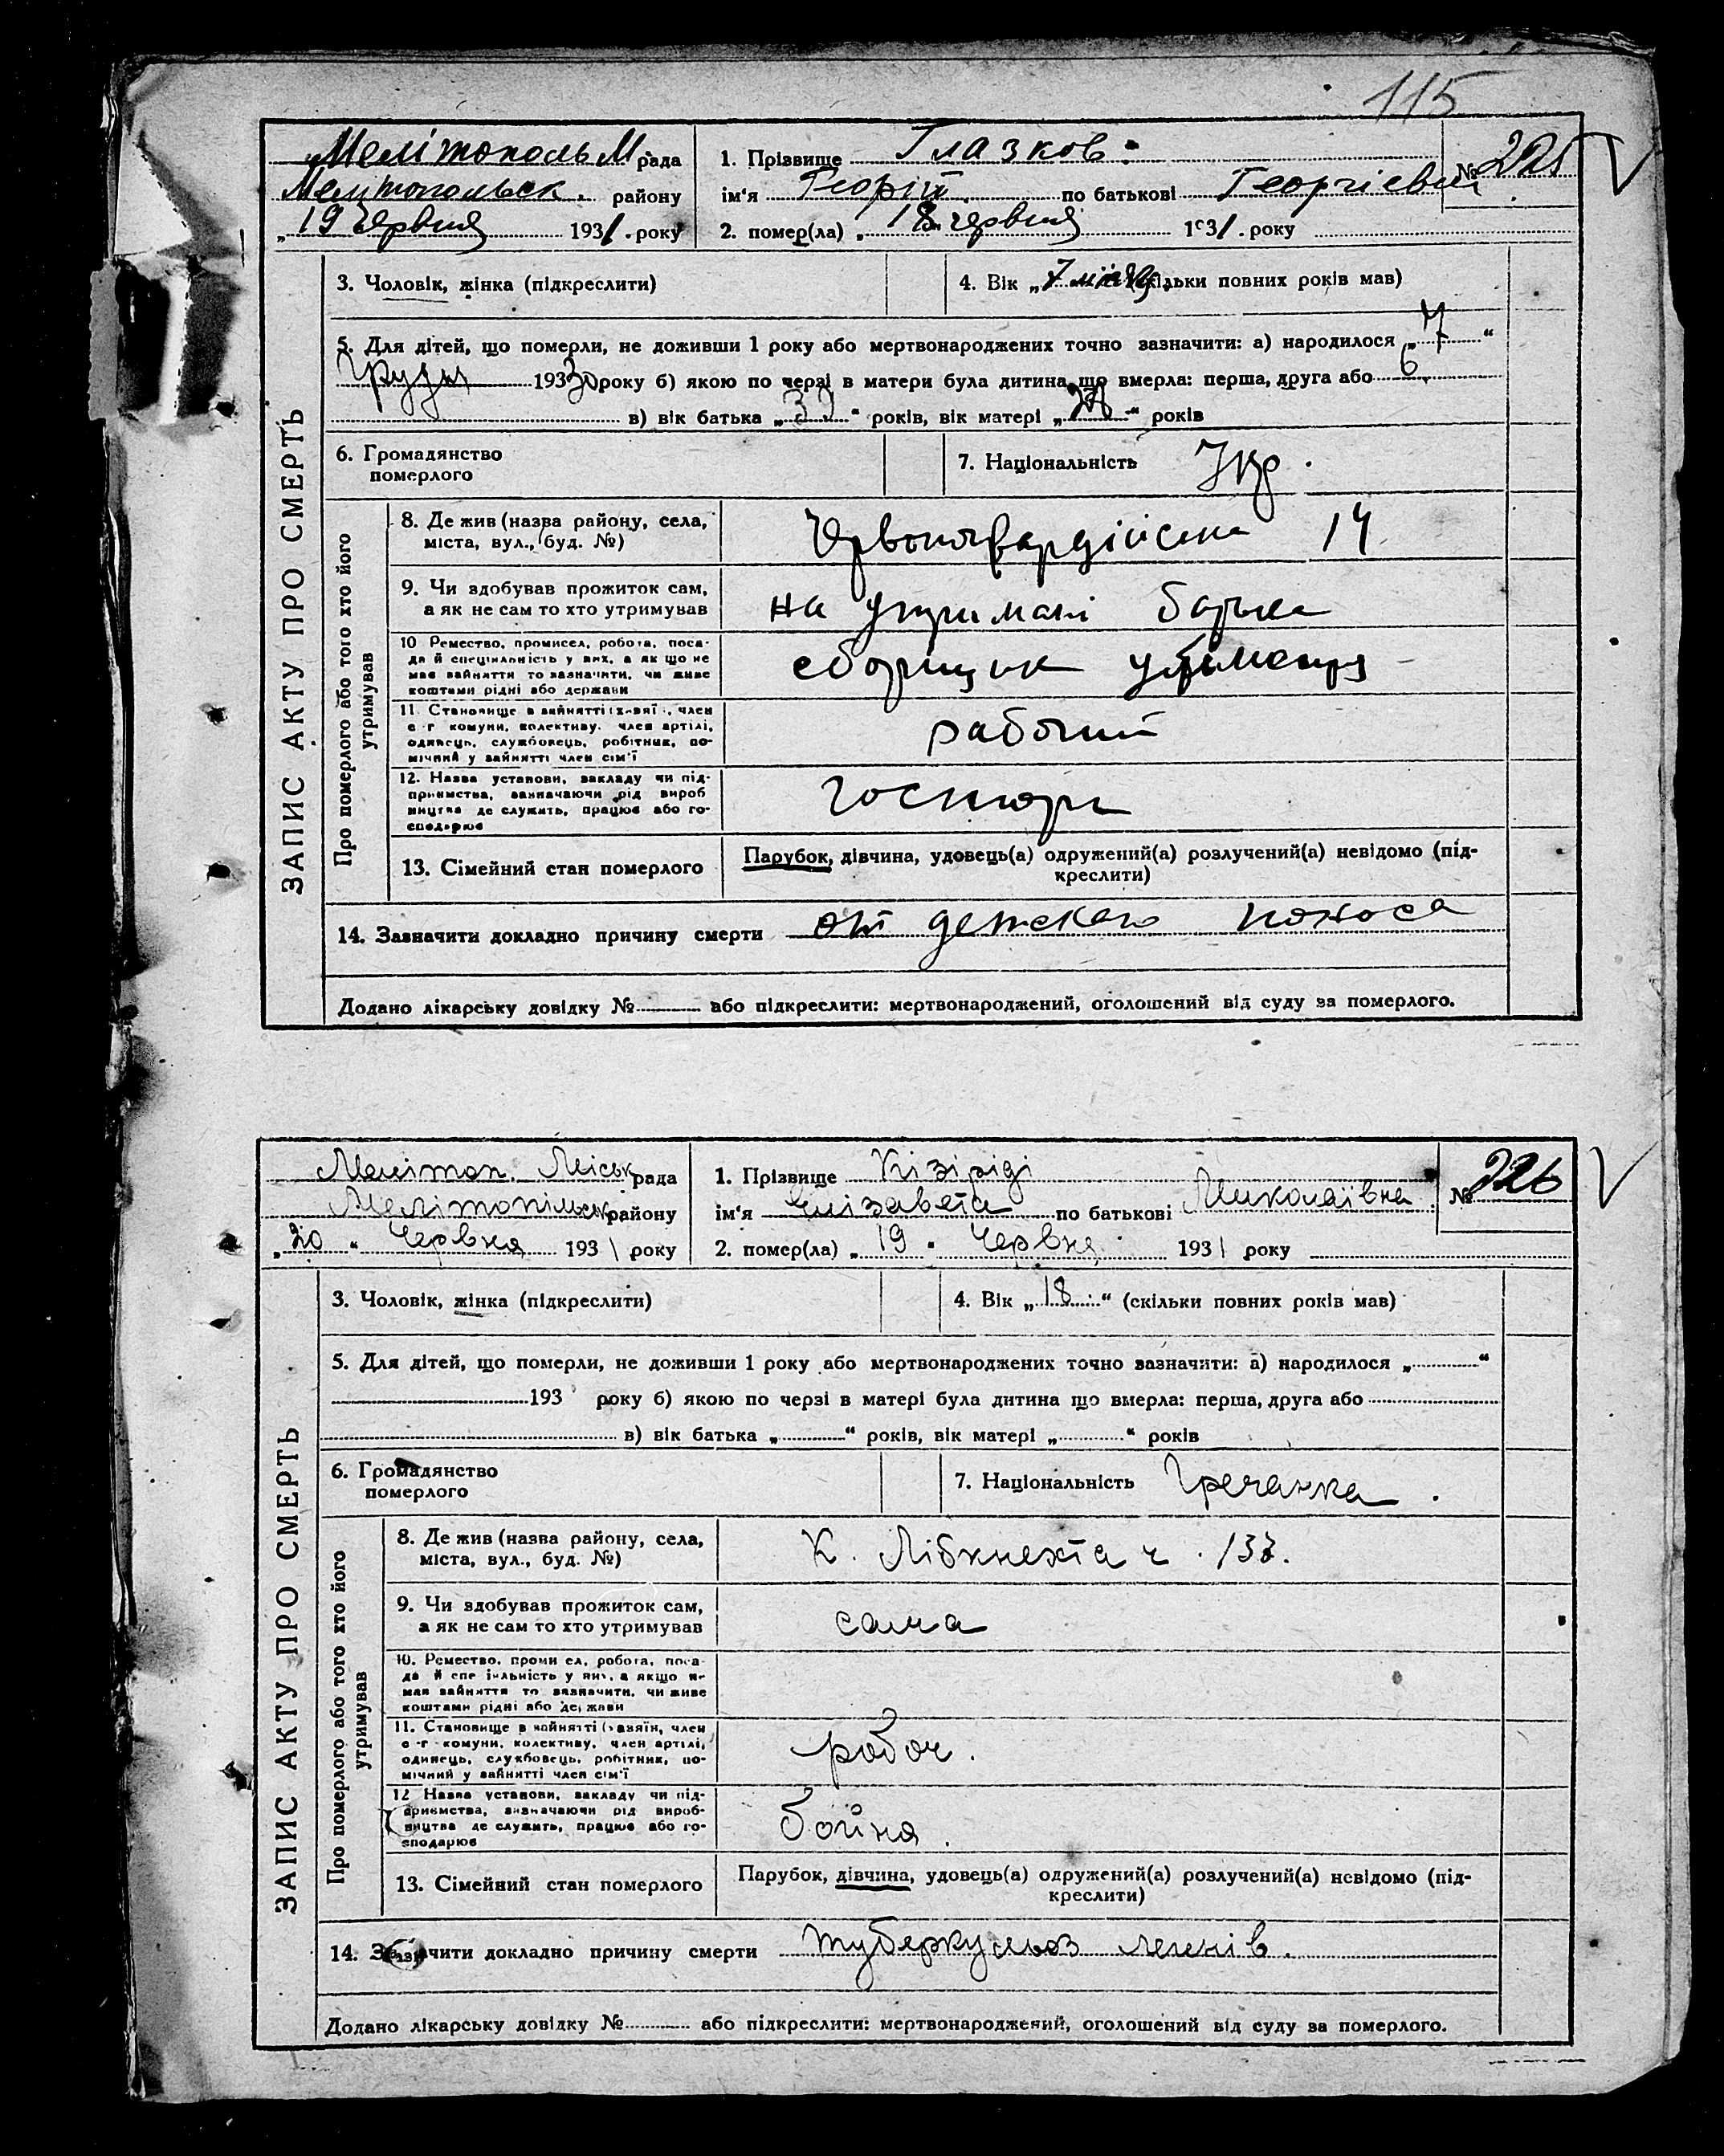 115
Мелітополь М рада
Мелитопольск. району
„19 Червня 1931. року
1. Прізвище Глазков
ім'я Георгій по батькові Георгієвич
2. помер(ла) „18 червня 1931. року
№ 225
ЗАПИС АКТУ ПРО СМЕРТЬ
3. Чоловік, жінка (підкреслити)
4. Вік „7 міся (скільки повних років мав)
5. Для дітей, що померли, не доживши 1 року або мертвонароджених точно зазначити: а) народилося „7“
Грудн 1930 року б) якою по черзі в матери була дитина що вмерла: перша, друга або 6
в) вік батька „33“ років, вік матері „“ років
6. Громадянство
померлого
7. Національність Укр.
Про померлого або того хто його
утримував
8. Де жив (назва району, села,
міста, вул., буд. №)
Червоногвардійська 14
9. Чи здобував прожиток сам,
а як не сам то хто утримував
на утримані батька
10 Ремество, промисел, робота, поса-
да й спеціяльність у них, а як що не
має зайняття то зазначити, чи живе
коштами рідні або держави
сборщик
11. Становище в зайнятті (хазяї, член
с-г комуни, колективу, член артілі,
одинець, службовець, робітник, по-
мічний у зайнятті член сім'ї
рабочий
12. Назва установи, закладу чи під-
приємства, зазначаючи рід вироб
ництва де служить, працює або го-
сподарює
Госторг
13. Сімейний стан померлого
Парубок, дівчина, удовець(а) одружений(а) розлучений(а) невідомо (під-
креслити)
14. Зазначити докладно причину смерти от детского поноса
Додано лікарську довідку № або підкреслити: мертвонароджений, оголошений від суду за померлого.
Меліток. Міськ рада
Мелітопільськ району
„20“ Червня 1931 року
1. Прізвище Кізіріді
ім'я Єлізавета по батькові Миколаївна
2. помер(ла) „19“ Червня 1931 року
№ 226
ЗАПИС АКТУ ПРО СМЕРТЬ
3. Чоловік, жінка (підкреслити)
4. Вік „18“ (скільки повних років мав)
5. Для дітей, що померли, не доживши 1 року або мертвонароджених точно зазначити: а) народилося „“
193 року б) якою по черзі в матері була дитина що вмерла: перша, друга або
в) вік батька „“ років, вік матері „“ років
6. Громадянство
померлого
7. Національність Гречанка.
Про померлого або того хто його
утримував
8. Де жив (назва району, села,
міста, вул., буд. №)
К. Лібкнехта ч. 137.
9. Чи здобував прожиток сам,
а як не сам то хто утримував
сама
10. Ремество, промисел, робота, поса-
да й спеціяльність у них, а якщо не
має зайняття то зазначити, чи живе
коштами рідні або держави
11. Становище в зайнятті (хазяїн, член
с-г комуни, колективу, член артілі,
одинець, службовець, робітник, по-
мічний у зайнятті член сім'ї
робоч.
12 Назва установи, закладу чи під-
приємства, зазначаючи рід вироб-
ництва де служить, працює або го-
сподарює
бойня.
13. Сімейний стан померлого
Парубок, дівчина, удовець(а) одружений(а) розлучений(а) невідомо (під-
креслити)
14. Зазначити докладно причину смерти туберкульоз легенів.
Додано лікарську довідку № або підкреслити: мертвонароджений, оголошений від суду за померлого.